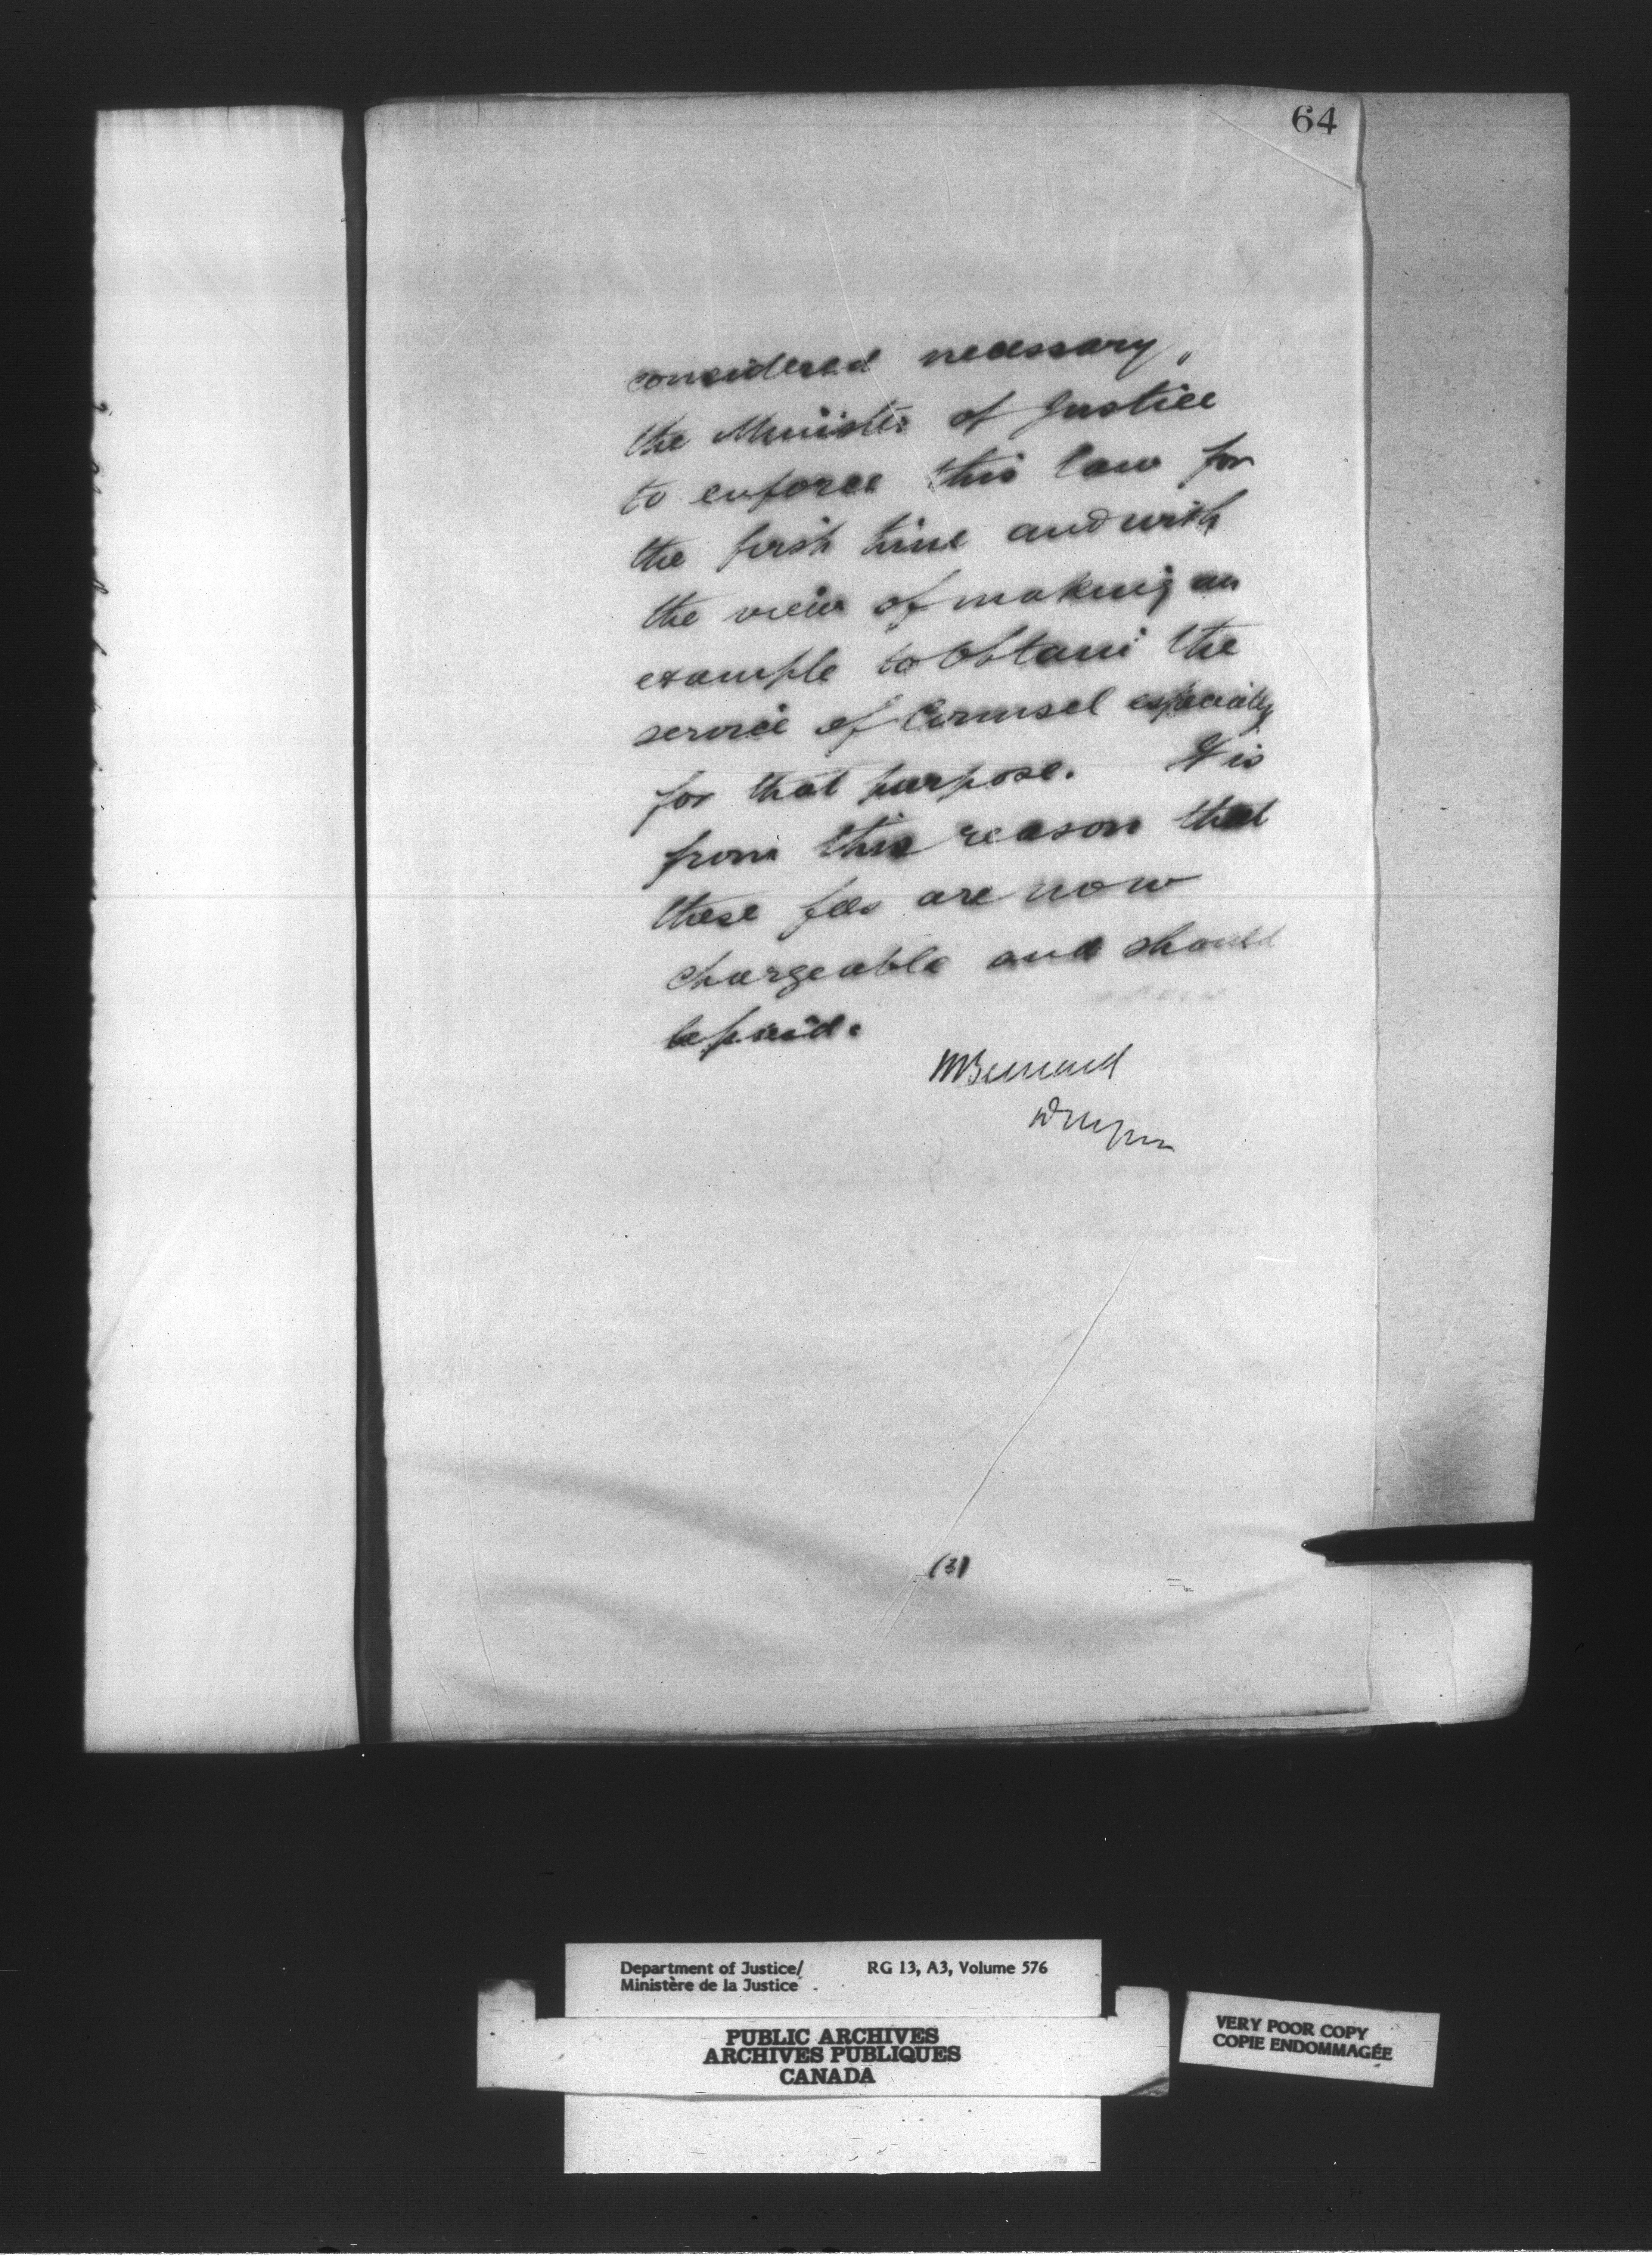 64
considered necessary,
the Minister of Justice
to enforce this law for
the first time and with
the view of making an
example to obtain the
service of Counsel especially
for that purpose. It is
from this reason that
these fees are now
chargeable and should
be paid.
MBernard
(3)
Department of Justice/
Ministère de la Justice
RG 13, A3, Volume 576
PUBLIC ARCHIVES
ARCHIVES PUBLIQUES
CANADA
VERY POOR COPY
COPIE ENDOMMAGÉE